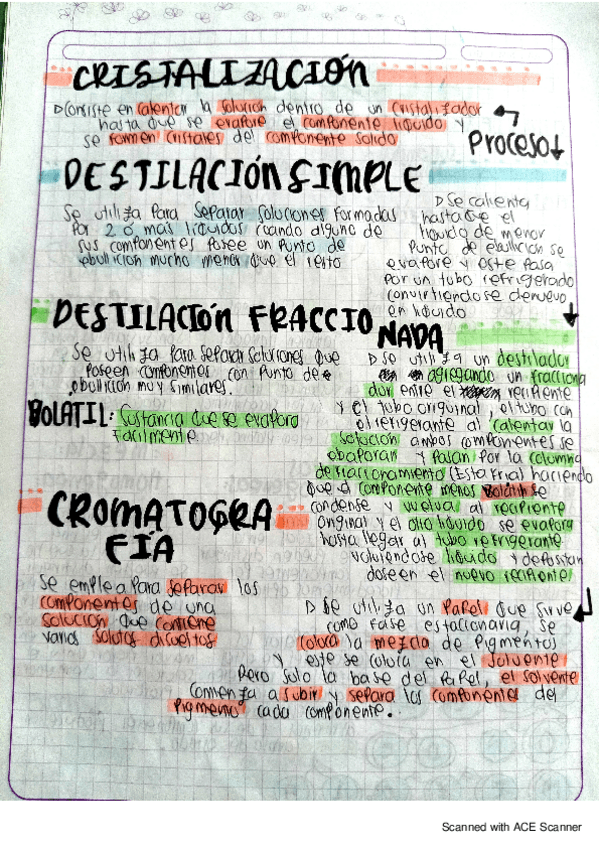 CRISTALIZACIÓN
▷Consiste en calentar la solución dentro de un cristalizador
hasta que se evapore el componente líquido y
se formen cristales del componente solido
Proceso↓
DESTILACIÓN SIMPLE
Se utiliza para separar soluciones formadas
por 2 ó mas líquidos cuando alguno de
sus componentes posee un punto de
ebullición mucho menor que el resto
▷ Se calienta
hasta que el
líquido de menor
punto de ebullición se
evapore y este pasa
por un tubo refrigerado
convirtiendose denuevo
en líquido
DESTILACIÓN FRACCIO
NADA
Se utiliza para separar soluciones que
poseen componentes con punto de
ebullición muy similares.
VOLATIL: Sustancia que se evapora
facilmente.
▷ Se utiliza un destilador
agregando un fracciona
dor entre el recipiente
y el tubo original, el tubo con
el refrigerante al calentar la
solución ambos componentes se
obaporan y pasan por la columna
de fraccionamiento (Esta fria) haciendo
que el componente menos volátil se
condense y vuelva al recipiente
original y el otro líquido se evapora
hasta llegar al tubo refrigerante
volviendose líquido y depositan
doseen el nuevo recipiente
CROMATOGRA
FÍA
Se emplea para separar los
componentes de una
solución que contiene
varios solutos disueltos
▷ Se utiliza un papel que sirve
como fase estacionaria, se
coloca la mezcla de pigmentos
y este se coloca en el solvente
pero solo la base del papel, el solvente
comienza a subir y separa los componentes del
pigmento cada componente.
Scanned with ACE Scanner